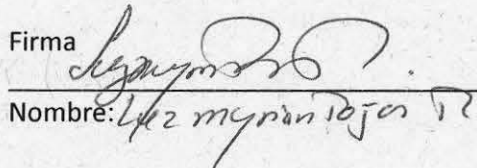 Firma
Nombre: Luz Myrian Rojas R